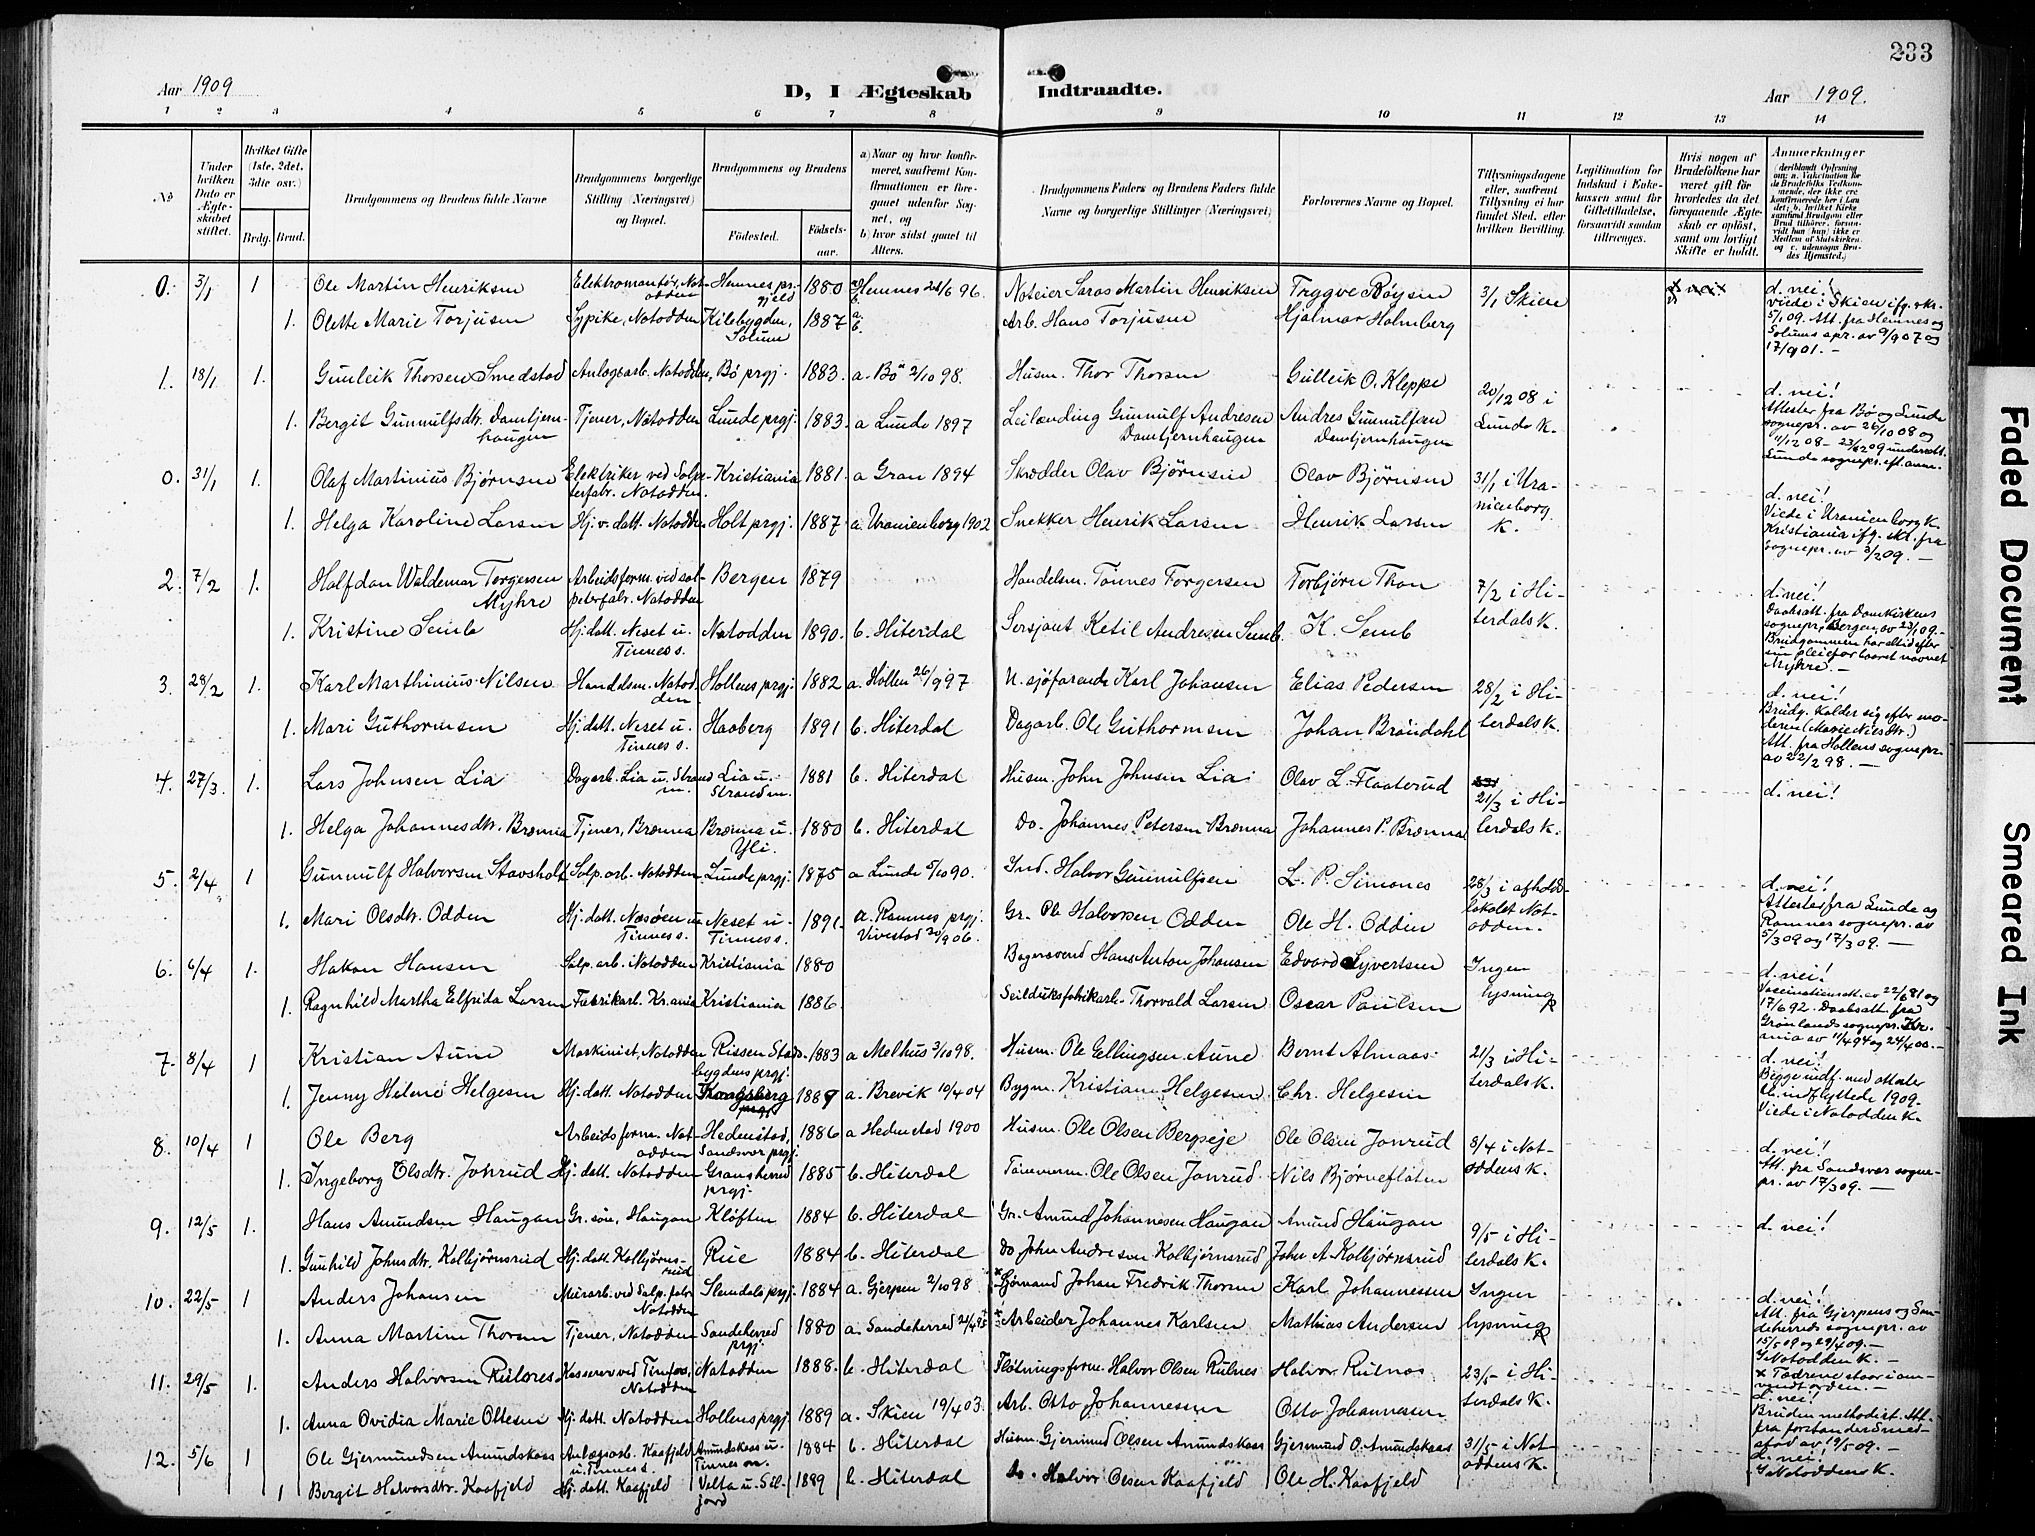 233
Aar 1909
D, I Ægteskab Indtraadte.
Aar 1909.
1 2 3 4 5 6 7 8 9 10 11 12 13 14
No
Under hvilken Dato er Ægteskabet stiftet.
Hvilket Gifte (1ste, 2det, 3die osv.)
Brdg. Brud.
Brudgommens og Brudens fulde Navne
Brudgommens borgerlige Stilling (Næringsvei) og Bopæl.
Brudgommens og Brudens
Fødested. Fødselsaar.
a) Naar og hvor konfirmeret, saafremt Konfirmationen er foregaaet udenfor Sognet, og
b) hvor sidst gaaet til Alters.
Brudgommens Faders og Brudens Faders fulde Navne og borgerlige Stillinger (Næringsvei)
Forlovernes Navne og Bopæl.
Tillysningsdagene eller, saafremt Tillysning ei har fundet Sted, efter hvilken Bevilling.
Legitimation for Indskud i Enkekassen samt for Giftetilladelse, forsaavidt saadan tiltrænges.
Hvis nogen af Brudefolkene har været gift før hvorledes da det foregaaende Ægteskab er opløst, samt om lovligt Skifte er holdt.
Anmærkninger
0. 3/1 1 Ole Martin Henriksen Elektromontør, Notodden Hemnes prgjeld 1880 a. Hemnes 28/6 96. Noteier Saras Martin Henriksen Trygve Bøysen 3/1 Skien d. nei!
1. Olette Marie Torjusen Sypike, Notodden Kilebygden, Solum 1887 a. b. Arb. Hans Torjusen Hjalmar Holmberg viede i Skien ifg. skr. 5/1 09. Att. fra Hemnes og Solums spr. av 9/9 07 og 17/9 01. —
1. 18/1 1. Gunleik Thorsen Smedstad Anlægsarb. Notodden, Bö prgj. 1883. a. Bö 2/10 98. Husm. Thor Thorsen Gulleik O. Kleppe 20/12 08 i d. nei!
1. Bergit Gunnulfsdtr. Damtjernhaugen Tjener, Notodden Lunde prgj. 1883. a Lunde 1897 Leilænding Gunnulf Andresen Damtjernhaugen Andres Gunnulfsen Damtjernhaugen Lunde K. Attester fra Bø og Lunde sognepr. av 26/10 08 og
0. 31/1 1. Olaf Martinius Bjørnsen Elektriker ved Salpeterfabr. Notodden. Kristiania 1881. a Gran 1894 Skrædder Olav Bjørnsen Olav Bjørnsen 31/1 i Ura- d. nei!
1. Helga Karoline Larsen Hj. v. datt. Notodden Holt prgj. 1887. a. Uranienborg 1902 Snekker Henrik Larsen Henrik Larsen nienborg K. Viede i Uranienborg K. Kristiania ifg. skr. fra sognepr. av 3/2 09. —
2. 7/2 1. Halfdan Waldemar Torgersen Myhre Arbeidsform. ved salpeterfabr. Notodden Bergen 1879 Handelsm. Tönnes Torgersen Torbjørn Thon 7/2 i Hi- d. nei!
1. Kristine Semb Hj. datt. Neset u. Tinness. Notodden 1890. b. Hiterdal Sersjant Ketil Andresen Semb K. Semb terdals K. Daabsatt. fra Domkirkens sognepr., Bergen, av 23/1 09. — Brudgommen har altid efter sin pleiefar baaret navnet Myhre. —
3. 28/2 1. Karl Marthinius Nilsen Handelsm. Notodden. Hollens prgj. 1882 a. Hollen 26/9 97 U. sjøfarende Karl Johansen Elias Pedersen 28/2 i Hi- d. nei!
1. Mari Guthormsen Hj. datt. Neset u. Tinness. Haaberg 1891 b. Hiterdal Dagarb. Ole Guthormsen Johan Brøndahl terdals K. Brudg. kalder sig efter moderen (Marie Nilsdtr.) Att. fra Hollens sognepr. av 22/2 98. —
4. 27/3. 1. Lars Johnsen Lia Dagarb. Lia u. Strandm. Lia u. Strandm. 1881 b. Hiterdal Husm. John Johnsen Lia Olav L. Flaaterud 21/3 i Hi- d. nei!
1. Helga Johannesdtr. Brænna Tjener, Brænna Brænna u. Yli. 1880 b. Hiterdal Do. Johannes Petersen Brænna Johannes P. Brænna terdals K.
5. 2/4 1 Gunnulf Halvorsen Stavsholt Salp. arb. Notodden Lunde prgj. 1875 a Lunde 5/10 90. Ind. Halvor Gunnulfsen L. P. Simones 28/3 i afholds- d. nei!
1. Mari Olsdtr. Odden Hj. datt. Næsøen u. Tinness. Neset u. Tinness. 1891. a. Ramnes prgj. Vivestad 30/9 06. Gr. Ole Halvorsen Odden Ole H. Odden lokalet Notodden. Attester fra Lunde og Ramnes sognepr. av 5/3 09 og 17/3 09. —
6. 6/4 1. Hakon Hansen Salp. arb. Notodden Kristiania 1880 Bagersvend Hans Anton Johansen Edvard Syvertsen Ingen d. nei!
1. Ragnhild Martha Elfrida Larsen Fabrikarb. Kr.ania Kristiania 1886. Seilduksfabrikarb. Thorvald Larsen Oscar Paulsen lysning Vaccinationsatt. av 22/6 81 og 17/6 92. Daabsatt. fra Grønlands sognepr. Kr.ania av 11/4 94 og 24/4 00. —
7. 8/4 1 Kristian Aune Maskinist, Notodden Rissen Stadsbygdens prgj. 1883 a Melhus 3/10 98. Husm. Ole Ellingsen Aune Bernt Almaas 21/3 i Hi- d. nei!
1. Jenny Helene Helgesen Hj. datt. Notodden Kongsberg prgj. 1887 a. Brevik 10/4 04 Bygm. Kristian Helgesen Chr. Helgesen terdals K. Begge indf. med attester bl. indflyttede 1909. Viede i Notodden K.
8. 10/4 1 Ole Berg Arbeidsform. Notodden Hedenstad, Sandsvær prgj. 1886 a Hedenstad 1900 Husm. Ole Olsen Bergseje Ole Olsen Jonrud 8/4 i Not- d. nei!
1. Ingeborg Olsdtr. Jonrud Hj. datt. Notodden Gransherred prgj. 1885 b. Hiterdal Tømmerm. Ole Olsen Jonrud. Nils Bjørneflaten oddens K. Att. fra Sandsvær sognepr. av 17/3 09. —
9. 12/5 1. Hans Amundsen Haugan Gr. søn, Haugan Kløften 1884 b. Hiterdal Gr. Amund Johannesen Haugan Amund Haugan 9/5 i Hi- d. nei!
1. Gunhild Johnsdtr. Kolbjørnsrud Hj. datt. Kolbjørnsrud Rue 1884 b. Hiterdal Do John Andresen Kolbjørnsrud John A. Kolbjørnsrud terdals K.
10. 22/5 1 Anders Johansen Murarb. ved Salp. fabr. Notodden Slemdals prgj. 1884 a. Gjerpen 2/10 98 × Sjømand Johan Fredrik Thorsen Karl Johannessen Ingen d. nei!
1. Anna Martine Thorsen Tjener, Notodden Sandeherred prgj. 1880 a. Sandeherred 21/4 95 × Arbeider Johannes Karlsen Mathias Andersen lysning Att. fra Gjerpens og Sandeherreds sognepr. av 15/5 09 og 29/4 09. I Notodden K. — × Fædrene staar i omvendt orden. —
11. 29/5 1. Anders Halvorsen Rulnes. Kasserer ved Tinfos, Notodden Notodden 1888. b. Hiterdal Fløtningsform. Halvor Olsen Rulnes Halvor Rulnes 23/5 i Hi- d. nei!
1. Anna Ovidia Marie Ottesen Hj. datt. Notodden Hollens prgj. 1889 a. Skien 19/4 03. Arb. Otto Johannessen Otto Johannessen terdals K. Bruden methodist. Att. fra forstanderd
12. 5/6 1 Ole Gjermundsen Amundskaas Anlægsarb. Kaafjeld u. Tinness. Amundskaas u. Tinnesm. 1884 b. Hiterdal Husm. Gjermund Olsen Amundskaas Gjermund O. Amundskaas 31/5 i Not- d. nei!
1 Bergit Halvorsdtr. Kaafjeld Hj. datt. Kaafjeld Velta u. Seljord 1889 b. Hiterdal Do. Halvor Olsen Kaafjeld Ole H. Kaafjeld oddens K. I Notoddens K.
Faded Document
Smeared Ink